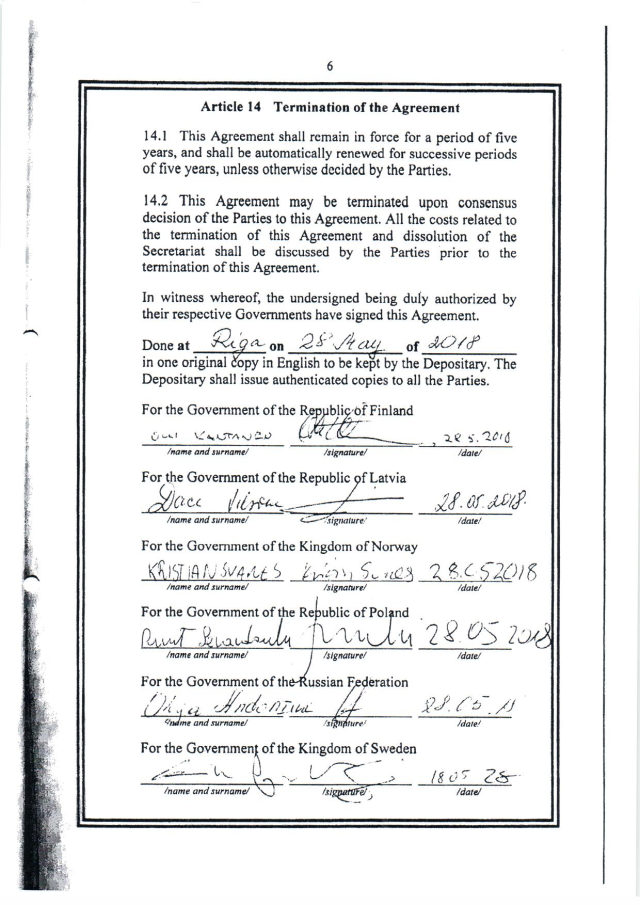 6
Article 14 Termination of the Agreement
14.1 This Agreement shall remain in force for a period of five
years, and shall be automatically renewed for successive periods
of five years, unless otherwise decided by the Parties.
14.2 This Agreement may be terminated upon consensus
decision of the Parties to this Agreement. All the costs related to
the termination of this Agreement and dissolution of the
Secretariat shall be discussed by the Parties prior to the
termination of this Agreement.
In witness whereof, the undersigned being duly authorized by
their respective Governments have signed this Agreement.
Done at Riga on 28 May of 2018
in one original copy in English to be kept by the Depositary. The
Depositary shall issue authenticated copies to all the Parties.
For the Government of the Republic of Finland
28 5. 2018
/name and surname/ /signature/ /date/
For the Government of the Republic of Latvia
Dace 28.05.2018.
/name and surname/ /signature/ /date/
For the Government of the Kingdom of Norway
KRISTIAN SVANES 28.052018
/name and surname/ /signature/ /date/
For the Government of the Republic of Poland
28.05 2018
/name and surname/ /signature/ /date/
For the Government of the Russian Federation
28.05.18
/name and surname/ /signature/ /date/
For the Government of the Kingdom of Sweden
18 05 28
/name and surname/ /signature/ /date/